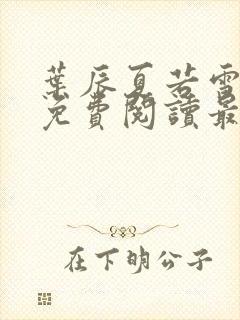 葉辰夏若雪
免費閱讀最
在下明公子